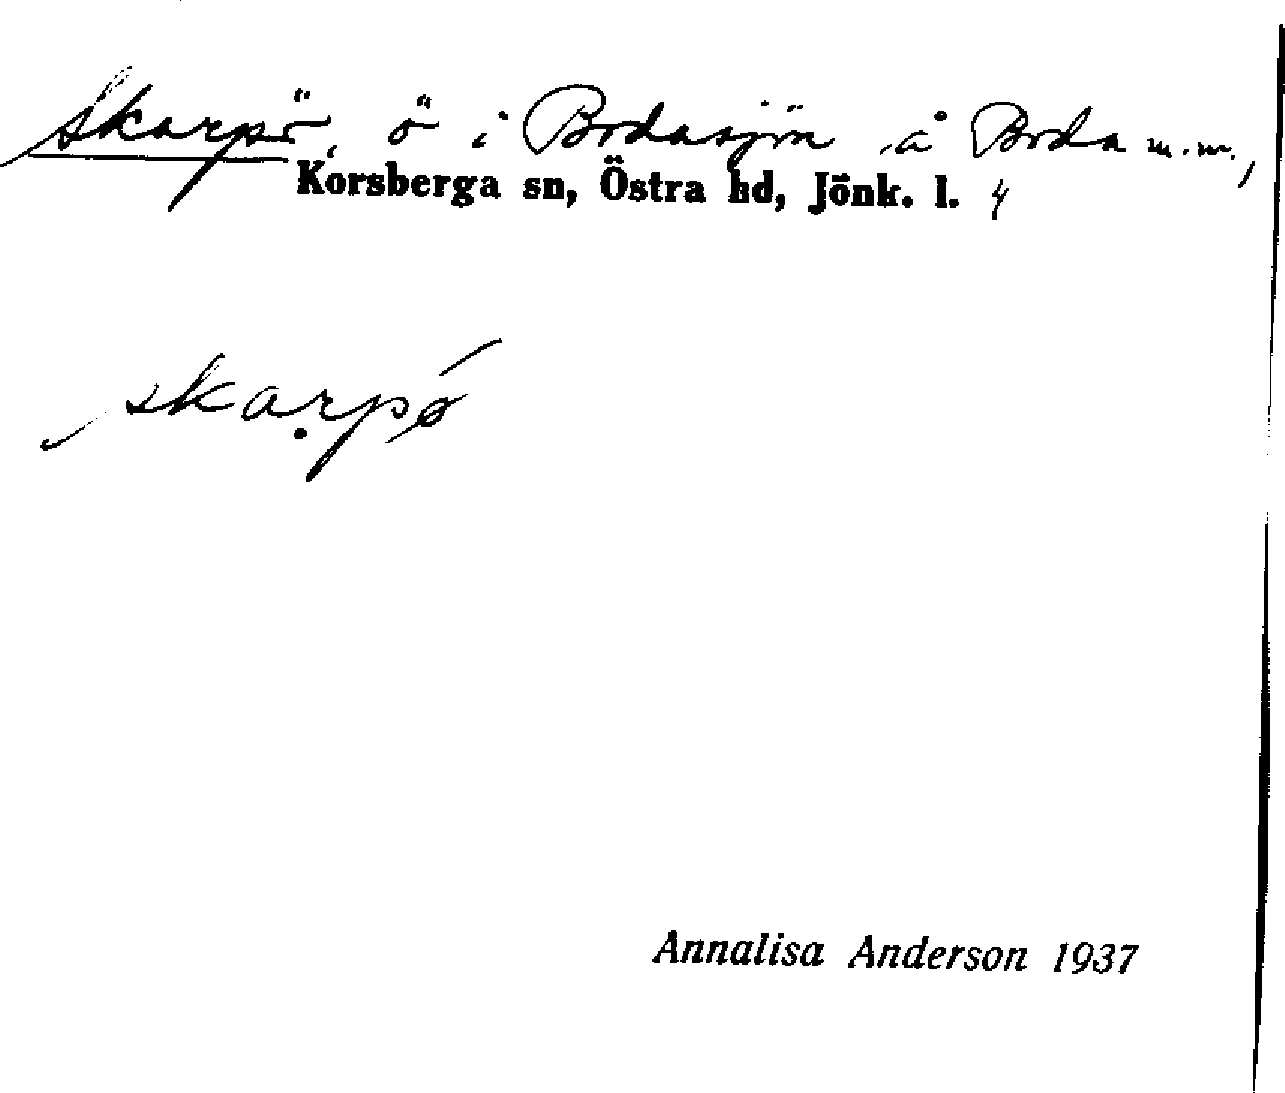 Skarpö, ö i Bodasjön å Boda m.m.,
Korsberga sn, Östra hd, Jönk. l. 4
skạrpø
Annalisa Anderson 1937